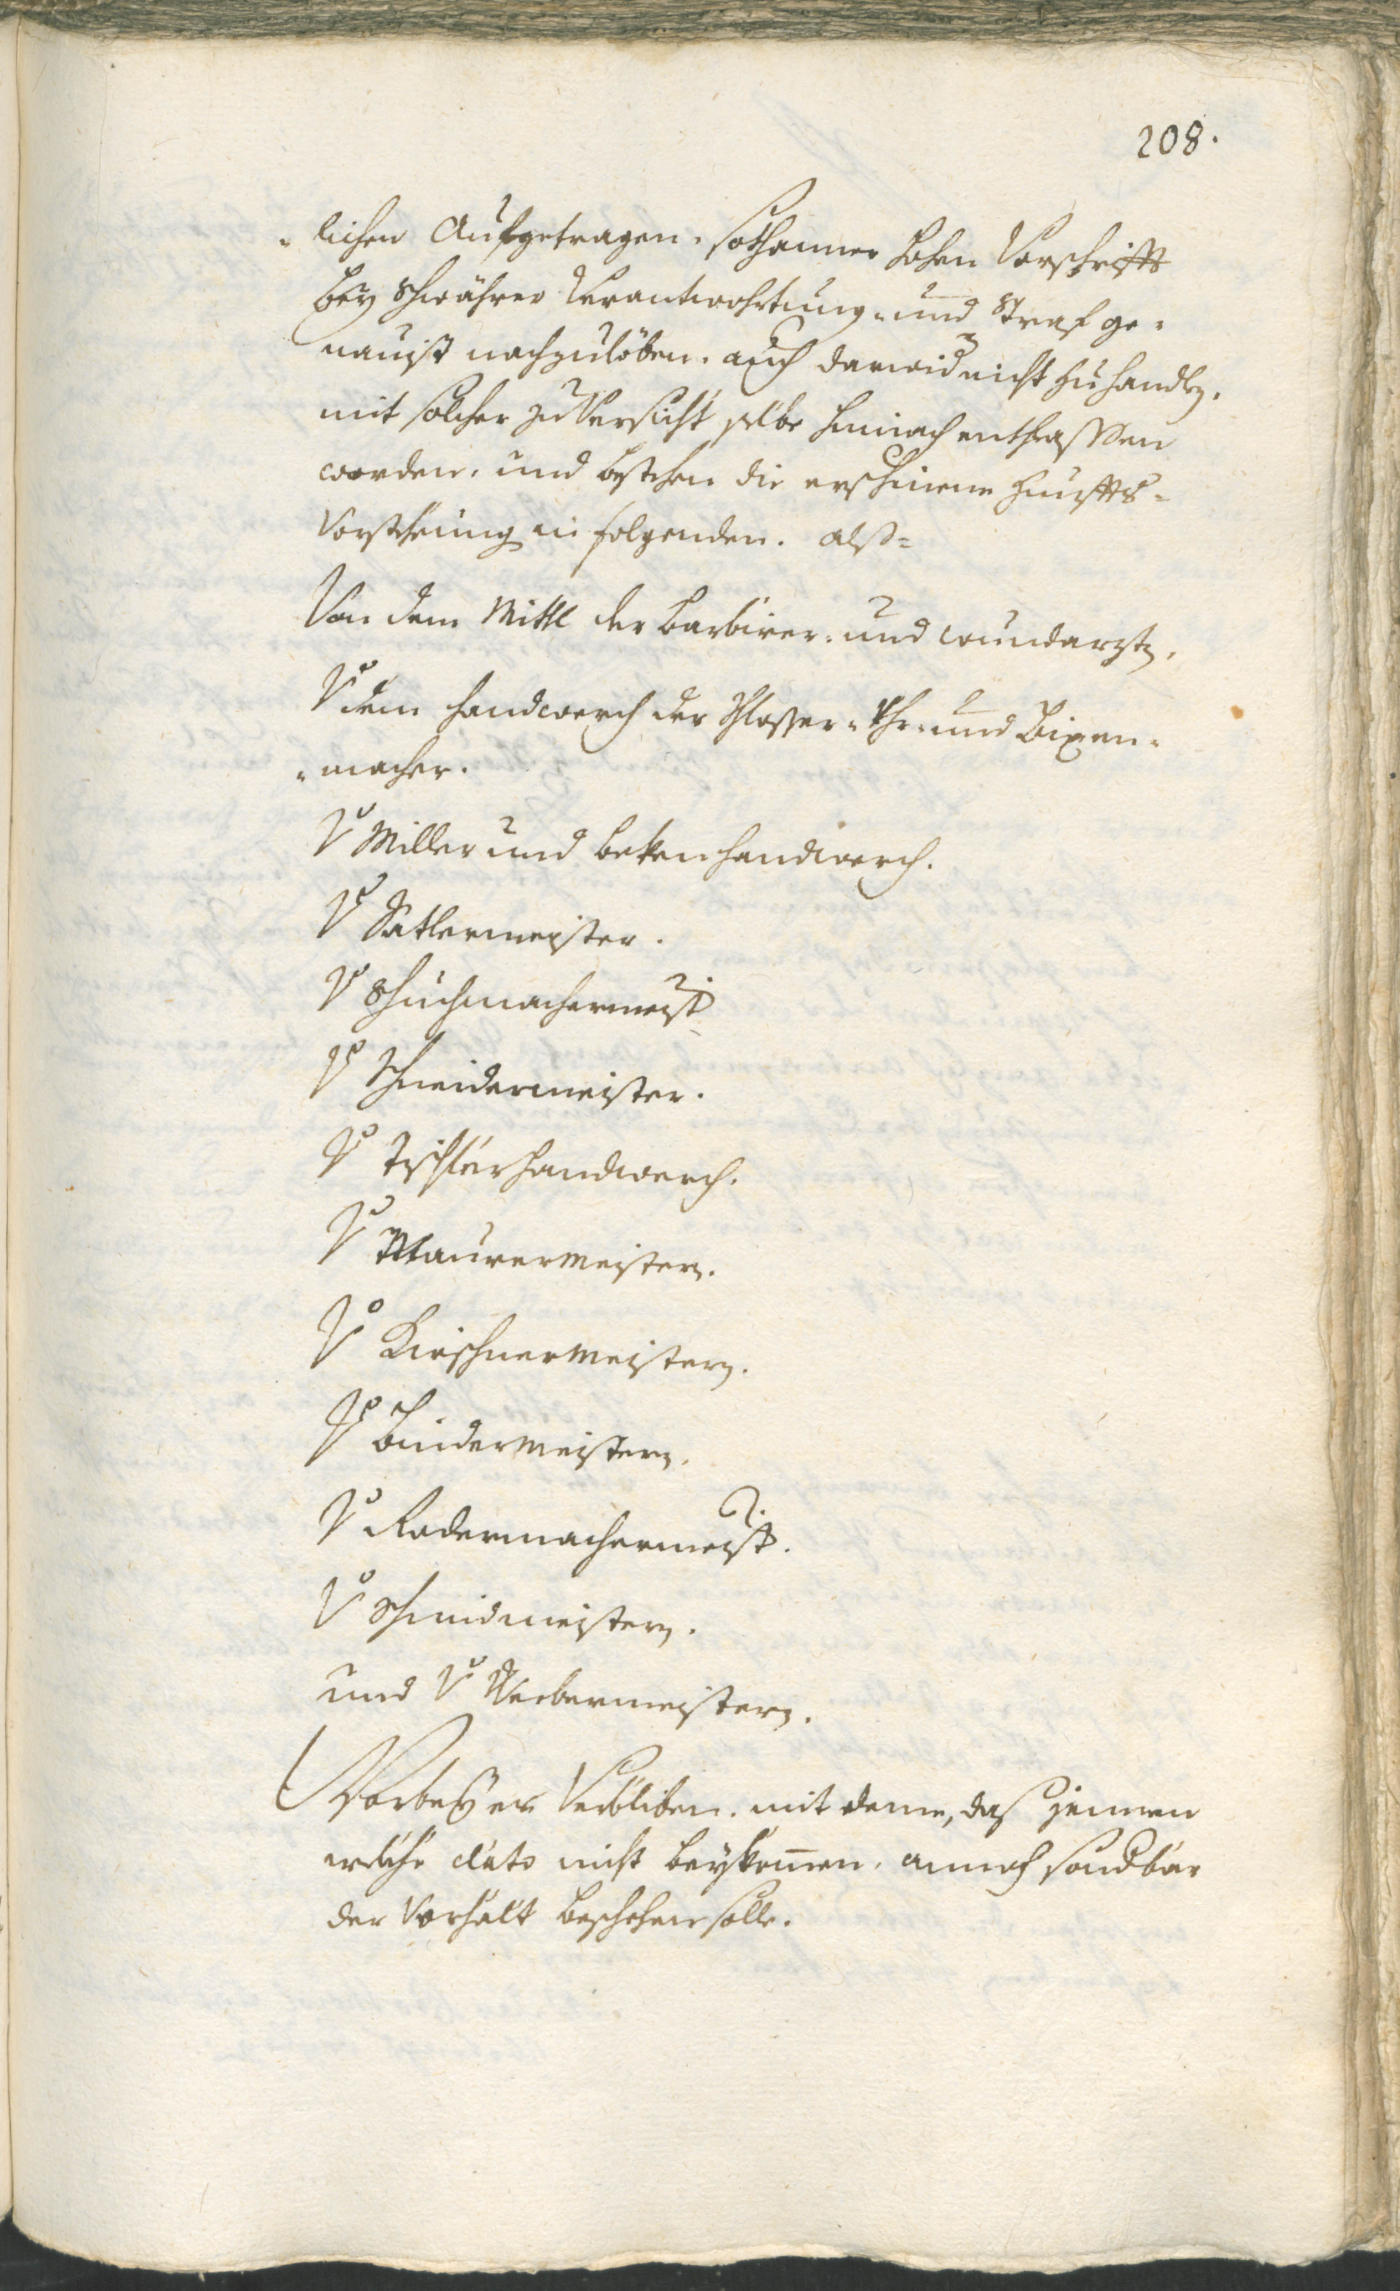 208.
-lichen Aufgetragen, sothanner hohen Vorschrifft
bey schwährer Verantworhtung- und Straf ge-
nauist nachzulöben. auch darwid nicht zu handln.
mit solcher zu Versicht selbe hinnach entlassen
worden. und bestehen die erschinene Zunffts-
Vorstehung in folgenden. alß=
Von dem Mittl der Barbirer- und wundarzt.
Vo dem handwerch der Schlosser- Uhr- und Bixen-
-macher.
Vo Miller und bekenhandwerch.
Vo Sattlermeister.
Vo Schuchmachermeist
Vo Schneidermeister.
Vo Tischlerhandwerch.
Vo Maurermeistern.
Vo Kirschnermeistern.
Vo Bindermeistern.
Vo Radermachermeist.
Vo Schmidmeistern.
und Vo Webermeistern.
Vorbey es Verbliben. mit deme, daß jennen
welche dato nicht beykomen, annoch sondbar
der Vorhalt beschehen solle.